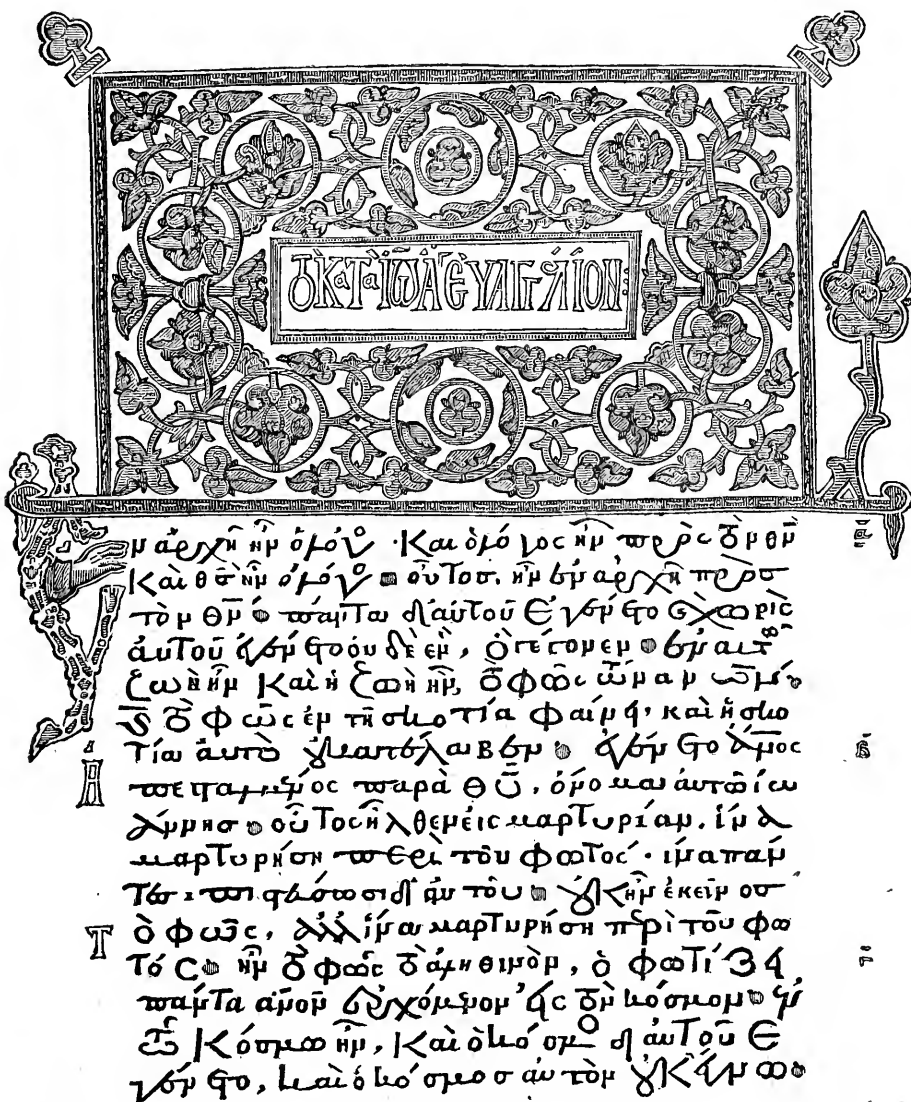 ΤΟ ΚΑΤΑ ΙΩΑ ΕΥΑΓΓΕΛΙΟΝ
Εν ἀρχῆ ἦν ὁ λόγος · Καὶ ὁ λόγος ἦν πρὸς τὸν θν
Καὶ θσ ἦν ὁ λόγος οὗτοσ ἦν ἐν ἀρχῆ πρὸσ
τὸν θν πάντα δι αὐτοῦ ἐγένετο καὶ χωρὶς
αὐτοῦ ἐγένετο οὐδὲ ἕν, ὃ γέγονεν ἐν αὐτῶ
ζωὴ ἦν Καὶ ἡ ζωὴ ἦν, τὸ φῶς τῶν ἀνων
καὶ τὸ φῶς ἐν τῆ σκοτία φαίνει, καὶ ἡ σκο
τία αὐτὸ οὐ κατέλαβεν ἐγένετο ἄνος
ἀπεσταλμένος παρὰ θῦ, ὄνομα αὐτῶ ἰω
άννησ οὗτος ἦλθεν εἰς μαρτυρίαν, ἵνα
μαρτυρήση περὶ τοῦ φωτός · ἵνα πάν
τεσ πιστεύσωσι δι αὐτοῦ οὐκ ἦν ἐκεῖνοσ
τὸ φῶς, ἀλλ ἵνα μαρτυρήση περὶ τοῦ φω
τός ἦν τὸ φῶς τὸ ἀληθινὸν, ὃ φωτίζει
πάντα ἄνον ἐρχόμενον εἰς τὸν κόσμον ἐν
τῶ Κόσμω ἦν, Καὶ ὁ κόσμος δι αὐτοῦ ἐ
γένετο, καὶ ὁ κόσμοσ αὐτὸν οὐκ ἔγνω